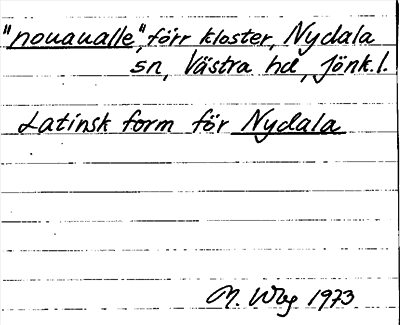 "nouaualle", förr kloster, Nydala
sn, Västra hd, Jönk.l.
Latinsk form för Nydala
M. Wbg 1973